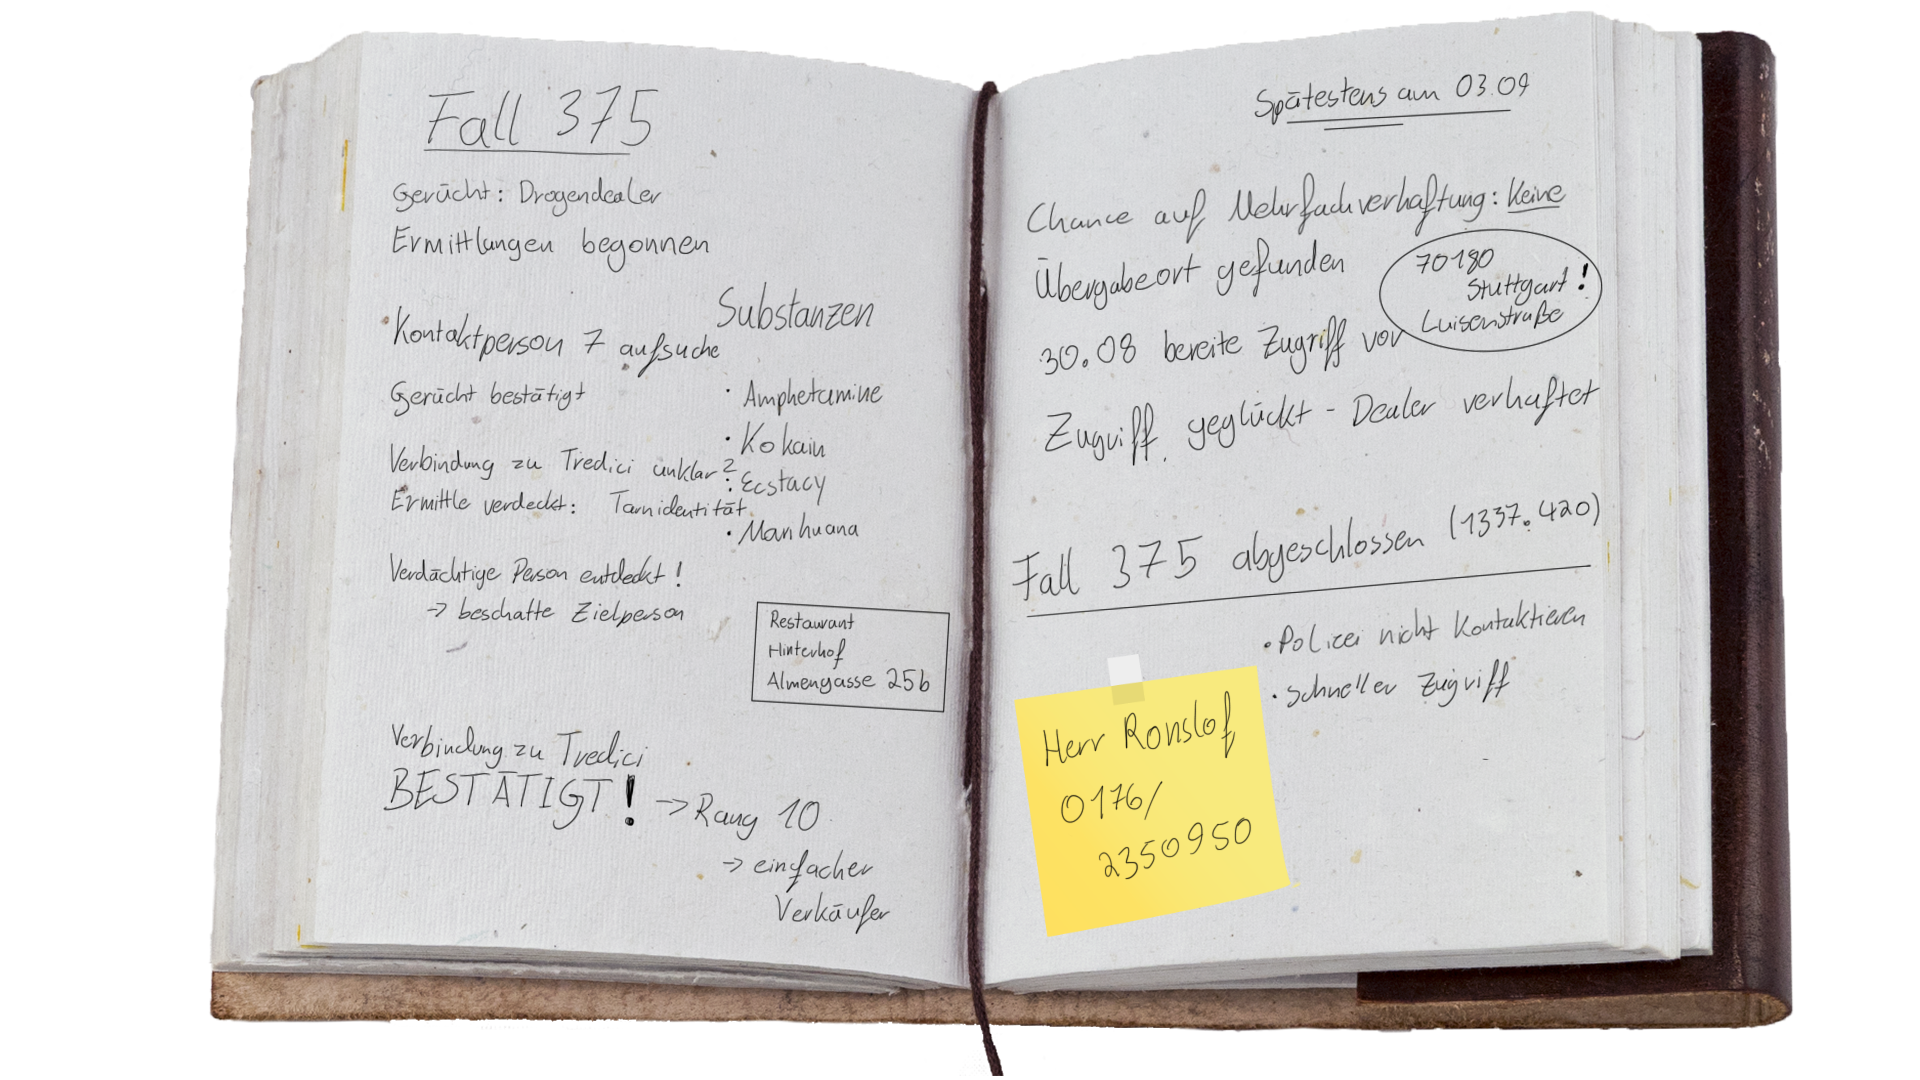 Fall 375
Gerücht: Drogendealer
Ermittlungen begonnen
Kontaktperson 7 aufsuche
Gerücht bestätigt
Verbindung zu Tredici unklar?
Ermittle verdeckt: Tarnidentität
Verdächtige Person entdeckt!
-> beschatte Zielperson
Substanzen
· Amphetamine
· Kokain
· Ecstacy
· Marihuana
Restaurant
Hinterhof
Almengasse 25b
Verbindung zu Tredici
BESTÄTIGT!
-> Rang 10
-> einfacher
Verkäufer
Spätestens am 03.09
Chance auf Mehrfachverhaftung: Keine
Übergabeort gefunden
70180
Stuttgart!
Luisenstraße
30.08 bereite Zugriff vor
Zugriff geglückt - Dealer verhaftet
Fall 375 abgeschlossen (1337.420)
· Polizei nicht Kontaktieren
· schneller Zugriff
Herr Ronslof
0176/
2350950